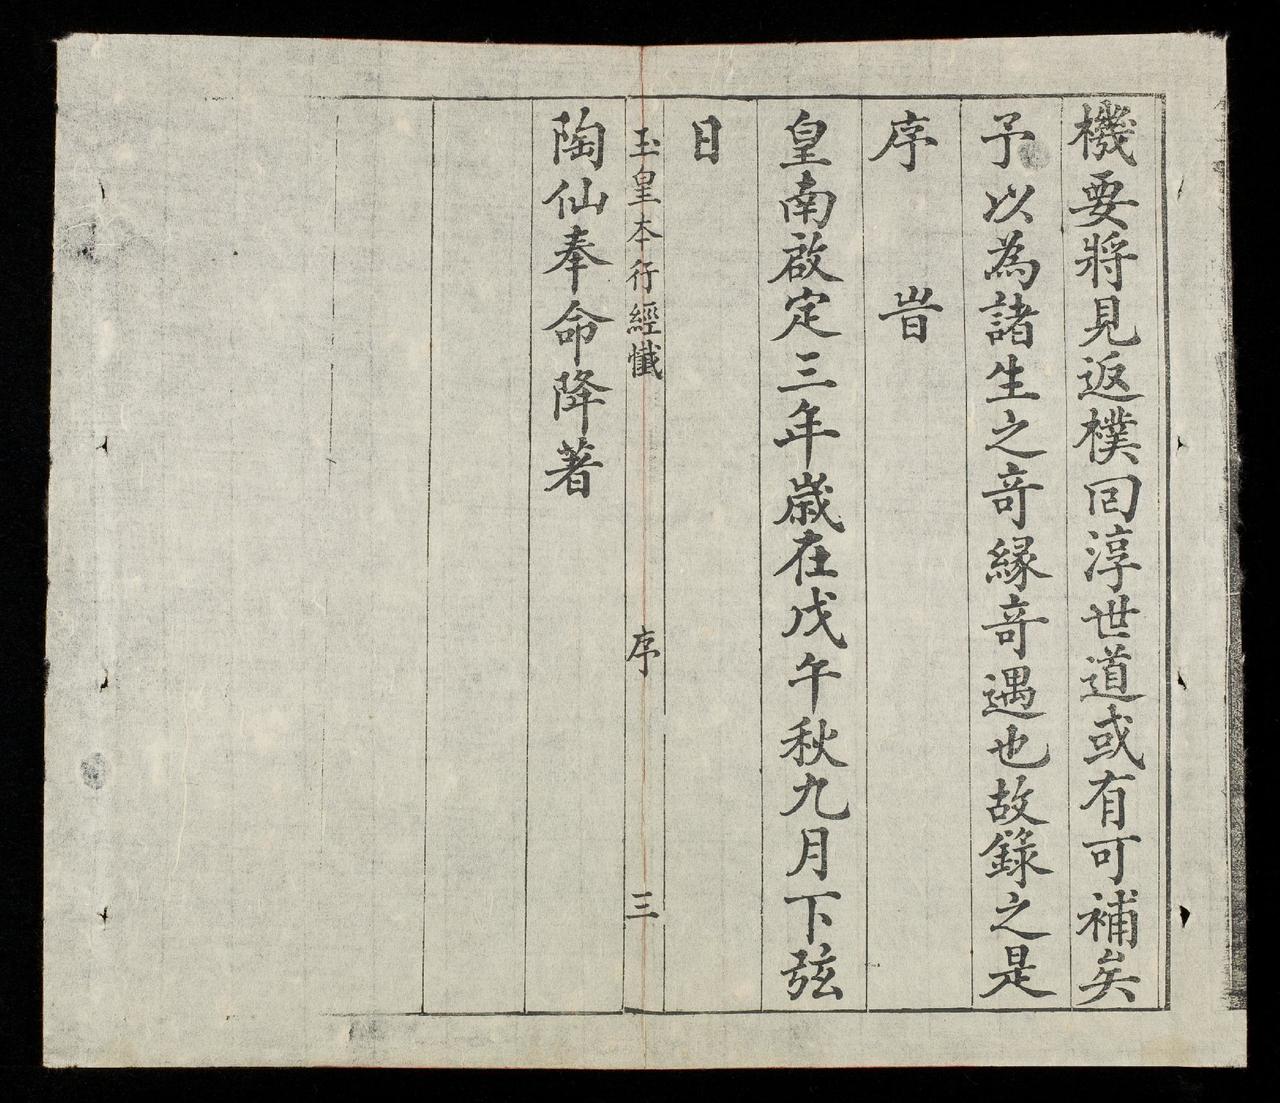 機要將見返樸囘淳世道或有可補矣
予以為諸生之竒緣竒遇也故錄之是
序　旹
皇南啟定三年歲在戊午秋九月下弦
日
玉皇本行經懺　序　三
陶仙奉命降著